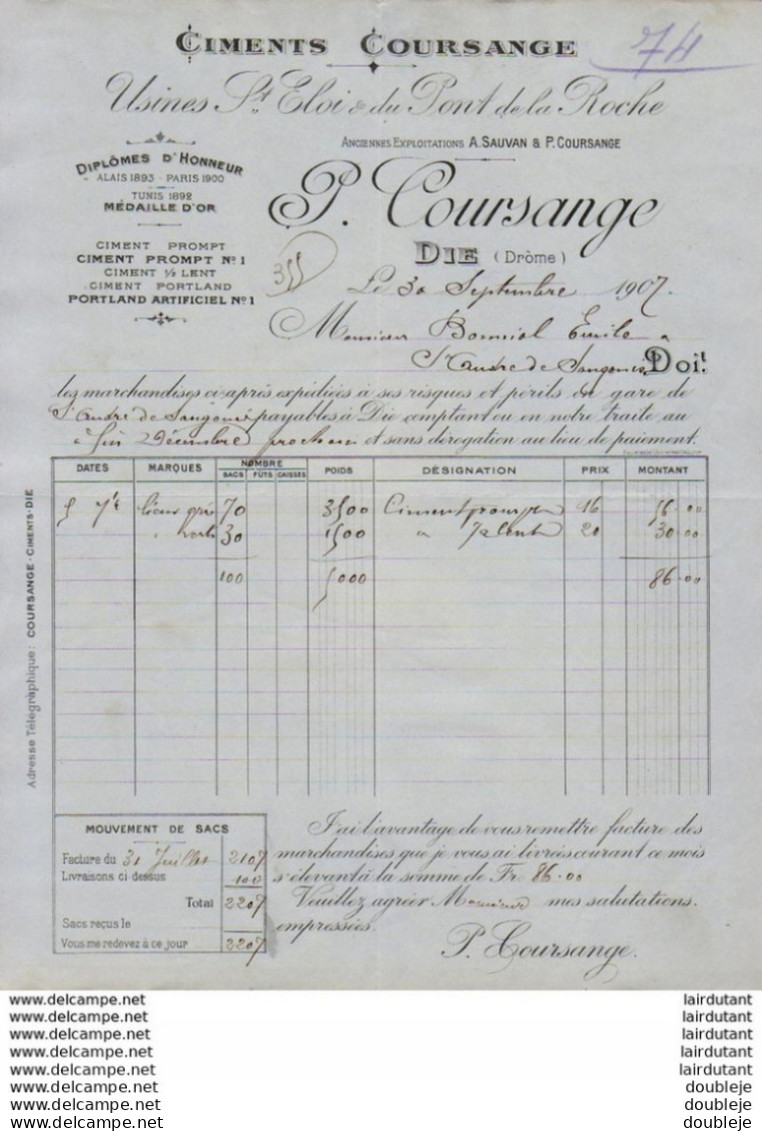 CIMENTS COURSANGE
74
Usines St Eloi & du Pont de la Roche
ANCIENNES EXPLOITATIONS A. SAUVAN & P. COURSANGE
DIPLÔMES D'HONNEUR
ALAIS 1893 - PARIS 1900
TUNIS 1892
MÉDAILLE D'OR
P. Coursange
DIE (Drôme)
CIMENT PROMPT
CIMENT PROMPT No 1
CIMENT ½ LENT
CIMENT PORTLAND
PORTLAND ARTIFICIEL No 1
355
Le 30 Septembre 1907.
Monsieur Bonniol Emile a
St André de Sangonis Doit
les marchandises ci-après expédiées à ses risques et périls en gare de
St André de Sangonis payables à Die comptant ou en notre traite au
à fin Décembre prochain et sans dérogation au lieu de paiement.
DATES MARQUES NOMBRE POIDS DÉSIGNATION PRIX MONTANT
SACS FUTS CAISSES
70 3500 Ciment prompt 16 56.00
30 1500 " ½ lent 20 30.00
100 5000 86.00
Adresse Télégraphique: COURSANGE - CIMENTS - DIE
MOUVEMENT DE SACS
Facture du 31 Juillet 2107
Livraisons ci dessus 100
Total 2207
Sacs reçus le
Vous me redevez à ce jour 2207
J'ai l'avantage de vous remettre facture des
marchandises que je vous ai livrées courant ce mois
s'élevant à la somme de Fr 86.00
Veuillez agréer Monsieur mes salutations
empressées.
P. Coursange.
www.delcampe.net lairdutant
www.delcampe.net lairdutant
www.delcampe.net lairdutant
www.delcampe.net lairdutant
www.delcampe.net lairdutant
www.delcampe.net doubleje
www.delcampe.net doubleje
www.delcampe.net doubleje